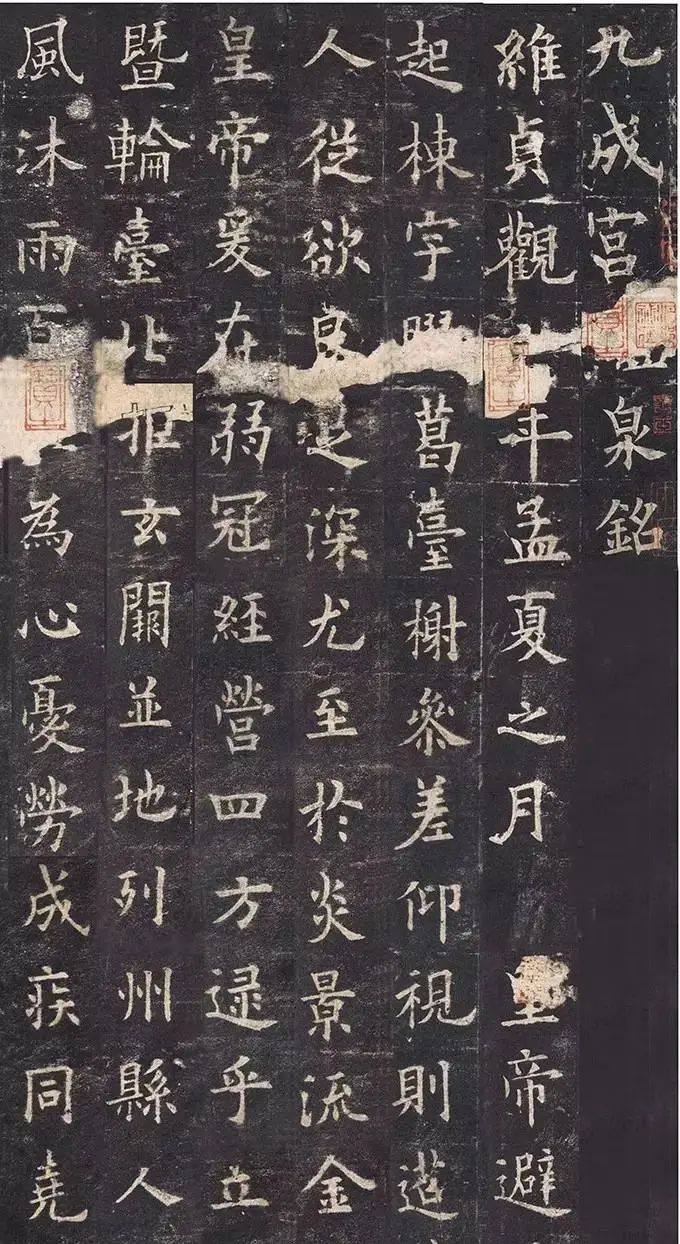 九成宮泉銘
維貞觀年孟夏之月 皇帝避
起棟宇葛臺榭參差仰視則迢
人從欲良足深尤至於炎景流金
皇帝爰在弱冠經營四方逮乎立
暨輪臺北拒玄闕並地列州縣人
風沐雨百為心憂勞成疾同堯